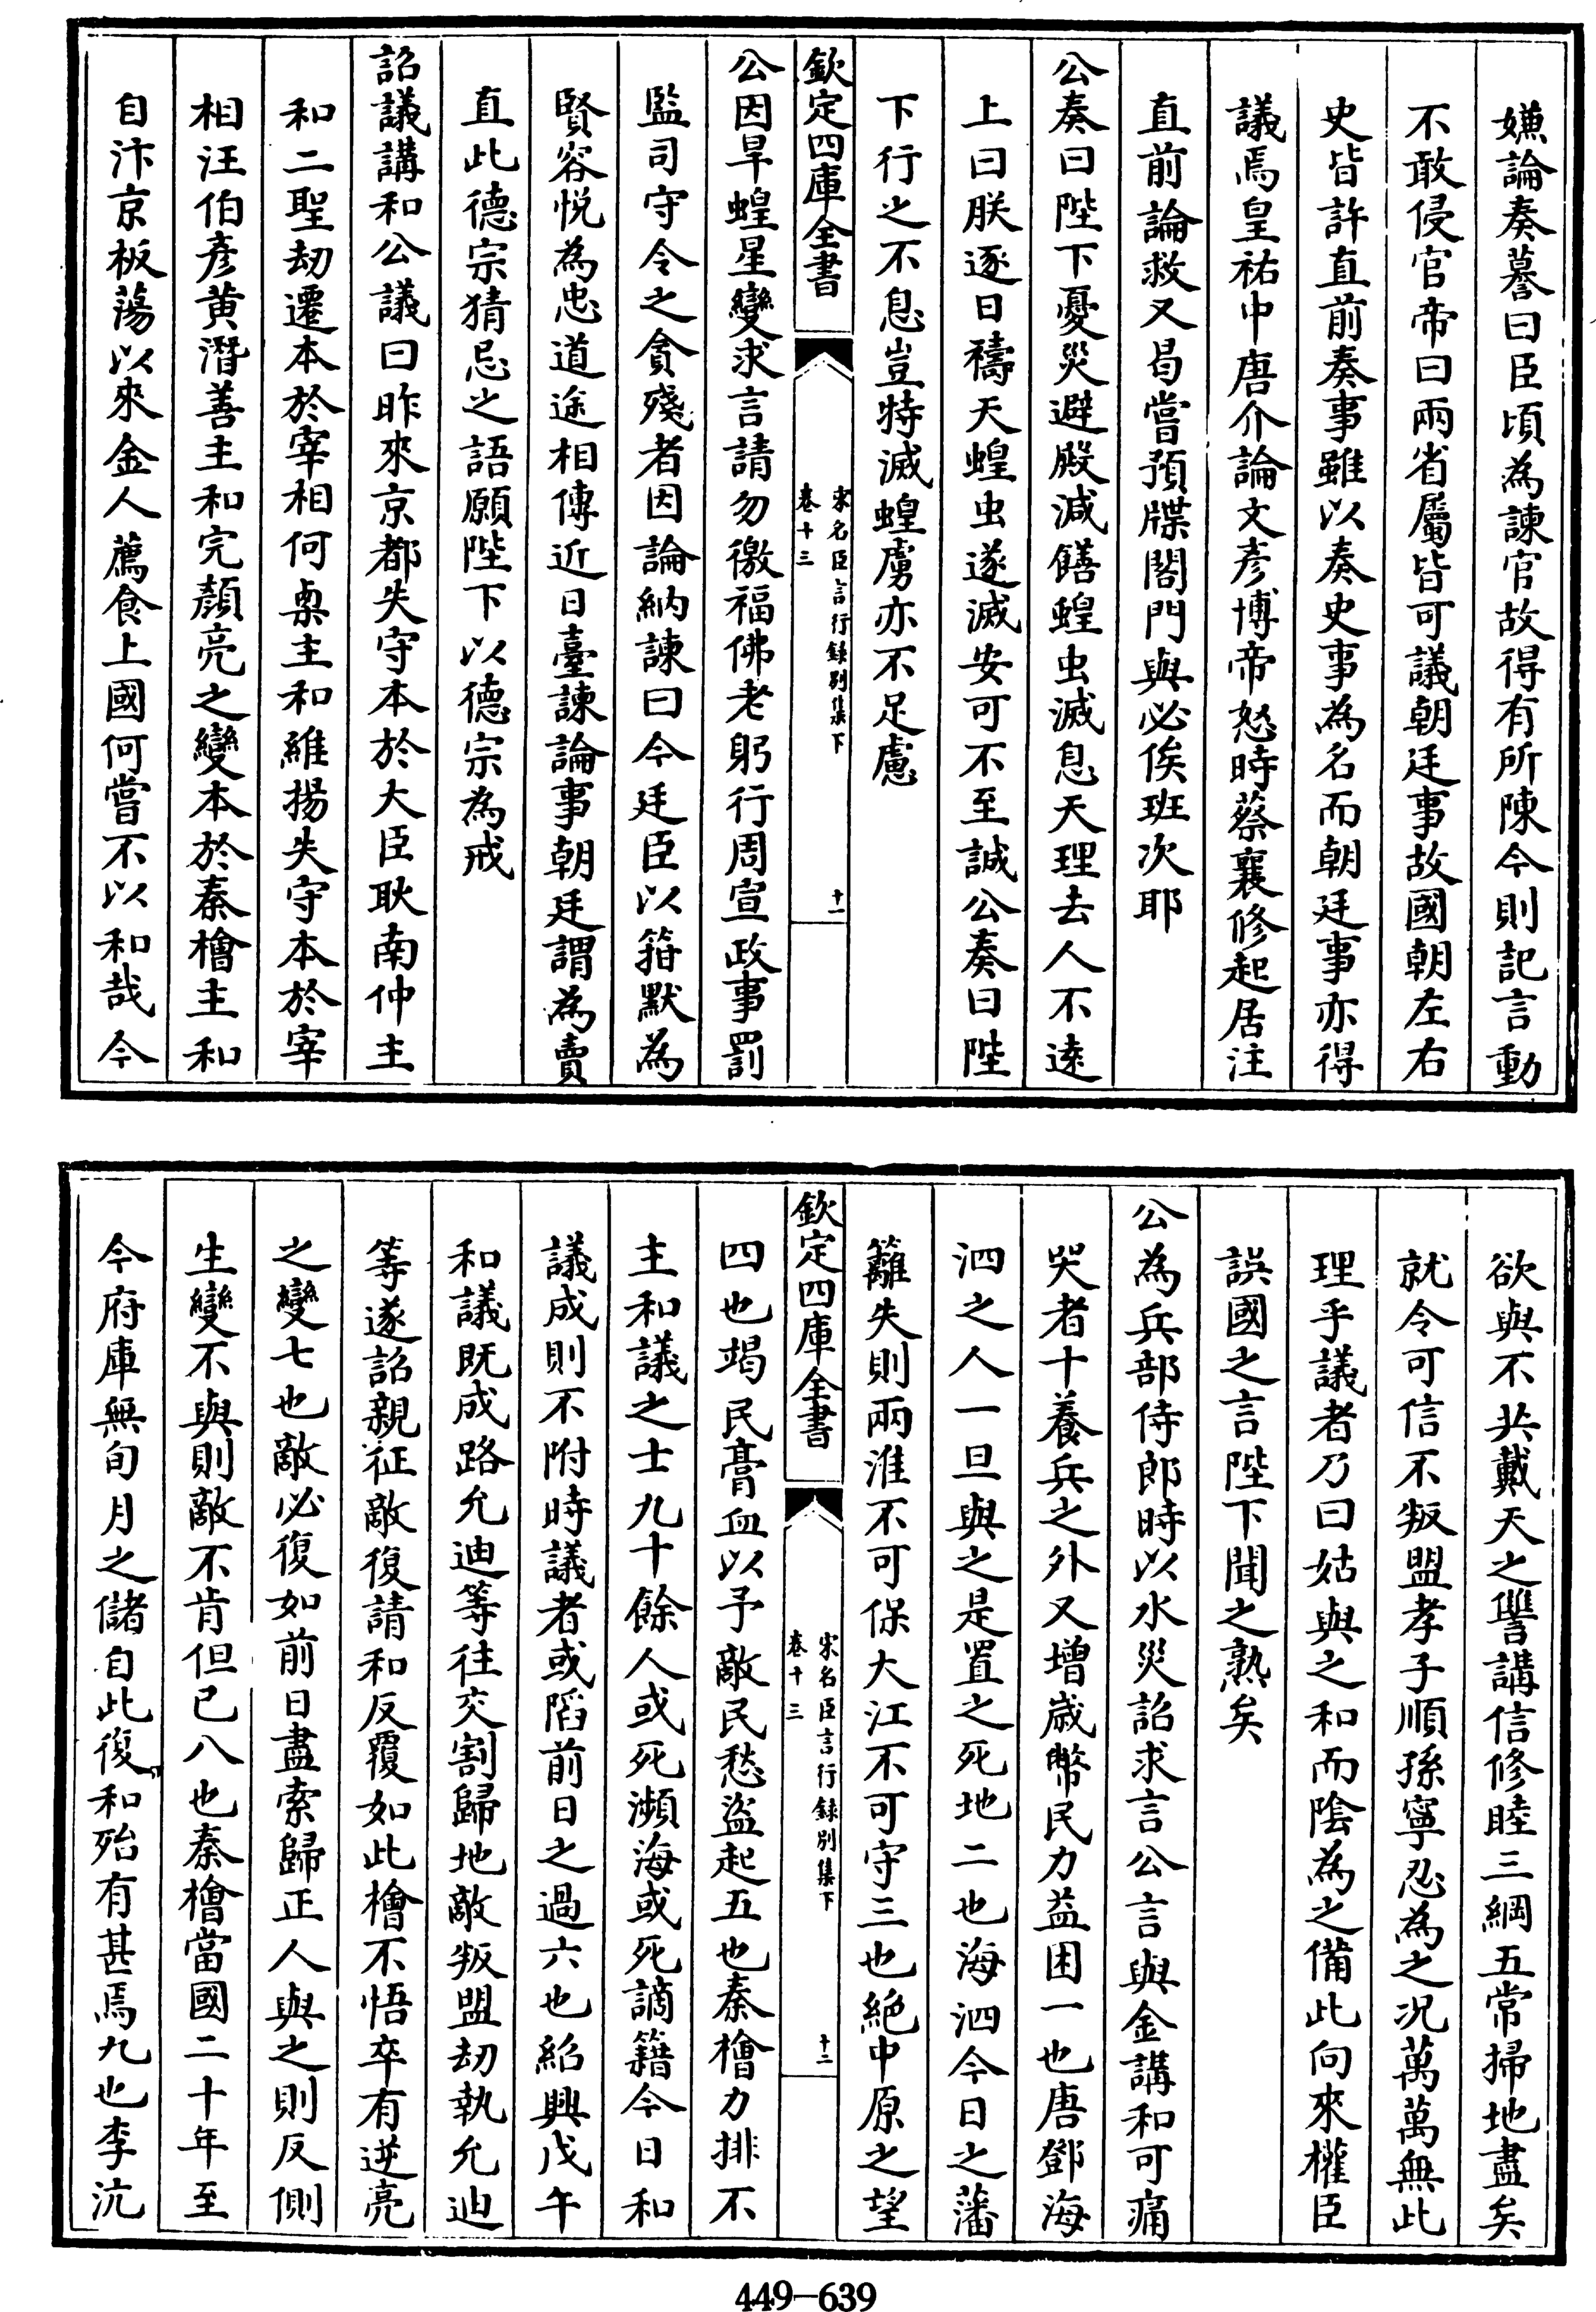 嫌論奏謩曰臣頃為諫官故得有所陳今則記言動
不敢侵官帝曰兩省屬皆可議朝廷事故國朝左右
史皆許直前奏事雖以奏史事為名而朝廷事亦得
議焉皇祐中唐介論文彥博帝怒時蔡襄修起居注
直前論救又曷嘗預牒閤門與必俟班次耶
公奏曰陛下憂災避殿減饍蝗虫滅息天理去人不遠
上曰朕逐日禱天蝗虫遂滅安可不至誠公奏曰陛
下行之不息豈特滅蝗虜亦不足慮
欽定四庫全書
宋名臣言行録別集下
卷十三
十一
公因旱蝗星變求言請勿徼福佛老躬行周宣政事罰
監司守令之貪殘者因論納諫曰今廷臣以箝默為
賢容悅為忠道途相傳近日臺諫論事朝廷謂為賣
直此德宗猜忌之語願陛下以德宗為戒
詔議講和公議曰昨來京都失守本於大臣耿南仲主
和二聖劫遷本於宰相何㮚主和維揚失守本於宰
相汪伯彥黃潛善主和完顏亮之變本於秦檜主和
自汴京板蕩以來金人薦食上國何嘗不以和哉今
欲與不共戴天之讐講信修睦三綱五常掃地盡矣
就令可信不叛盟孝子順孫寧忍為之况萬萬無此
理乎議者乃曰姑與之和而陰為之備此向來權臣
誤國之言陛下聞之熟矣
公為兵部侍郎時以水災詔求言公言與金講和可痛
哭者十養兵之外又增歲幣民力益困一也唐鄧海
泗之人一旦與之是置之死地二也海泗今日之藩
籬失則兩淮不可保大江不可守三也絕中原之望
欽定四庫全書
宋名臣言行録別集下
卷十三
十二
四也竭民膏血以予敵民愁盜起五也秦檜力排不
主和議之士九十餘人或死瀕海或死謫籍今日和
議成則不附時議者或蹈前日之過六也紹興戊午
和議既成路允迪等往交割歸地敵叛盟劫執允迪
等遂詔親征敵復請和反覆如此檜不悟卒有逆亮
之變七也敵必復如前日盡索歸正人與之則反側
生變不與則敵不肯但已八也秦檜當國二十年至
今府庫無旬月之儲自此復和殆有甚焉九也李沆
449-639